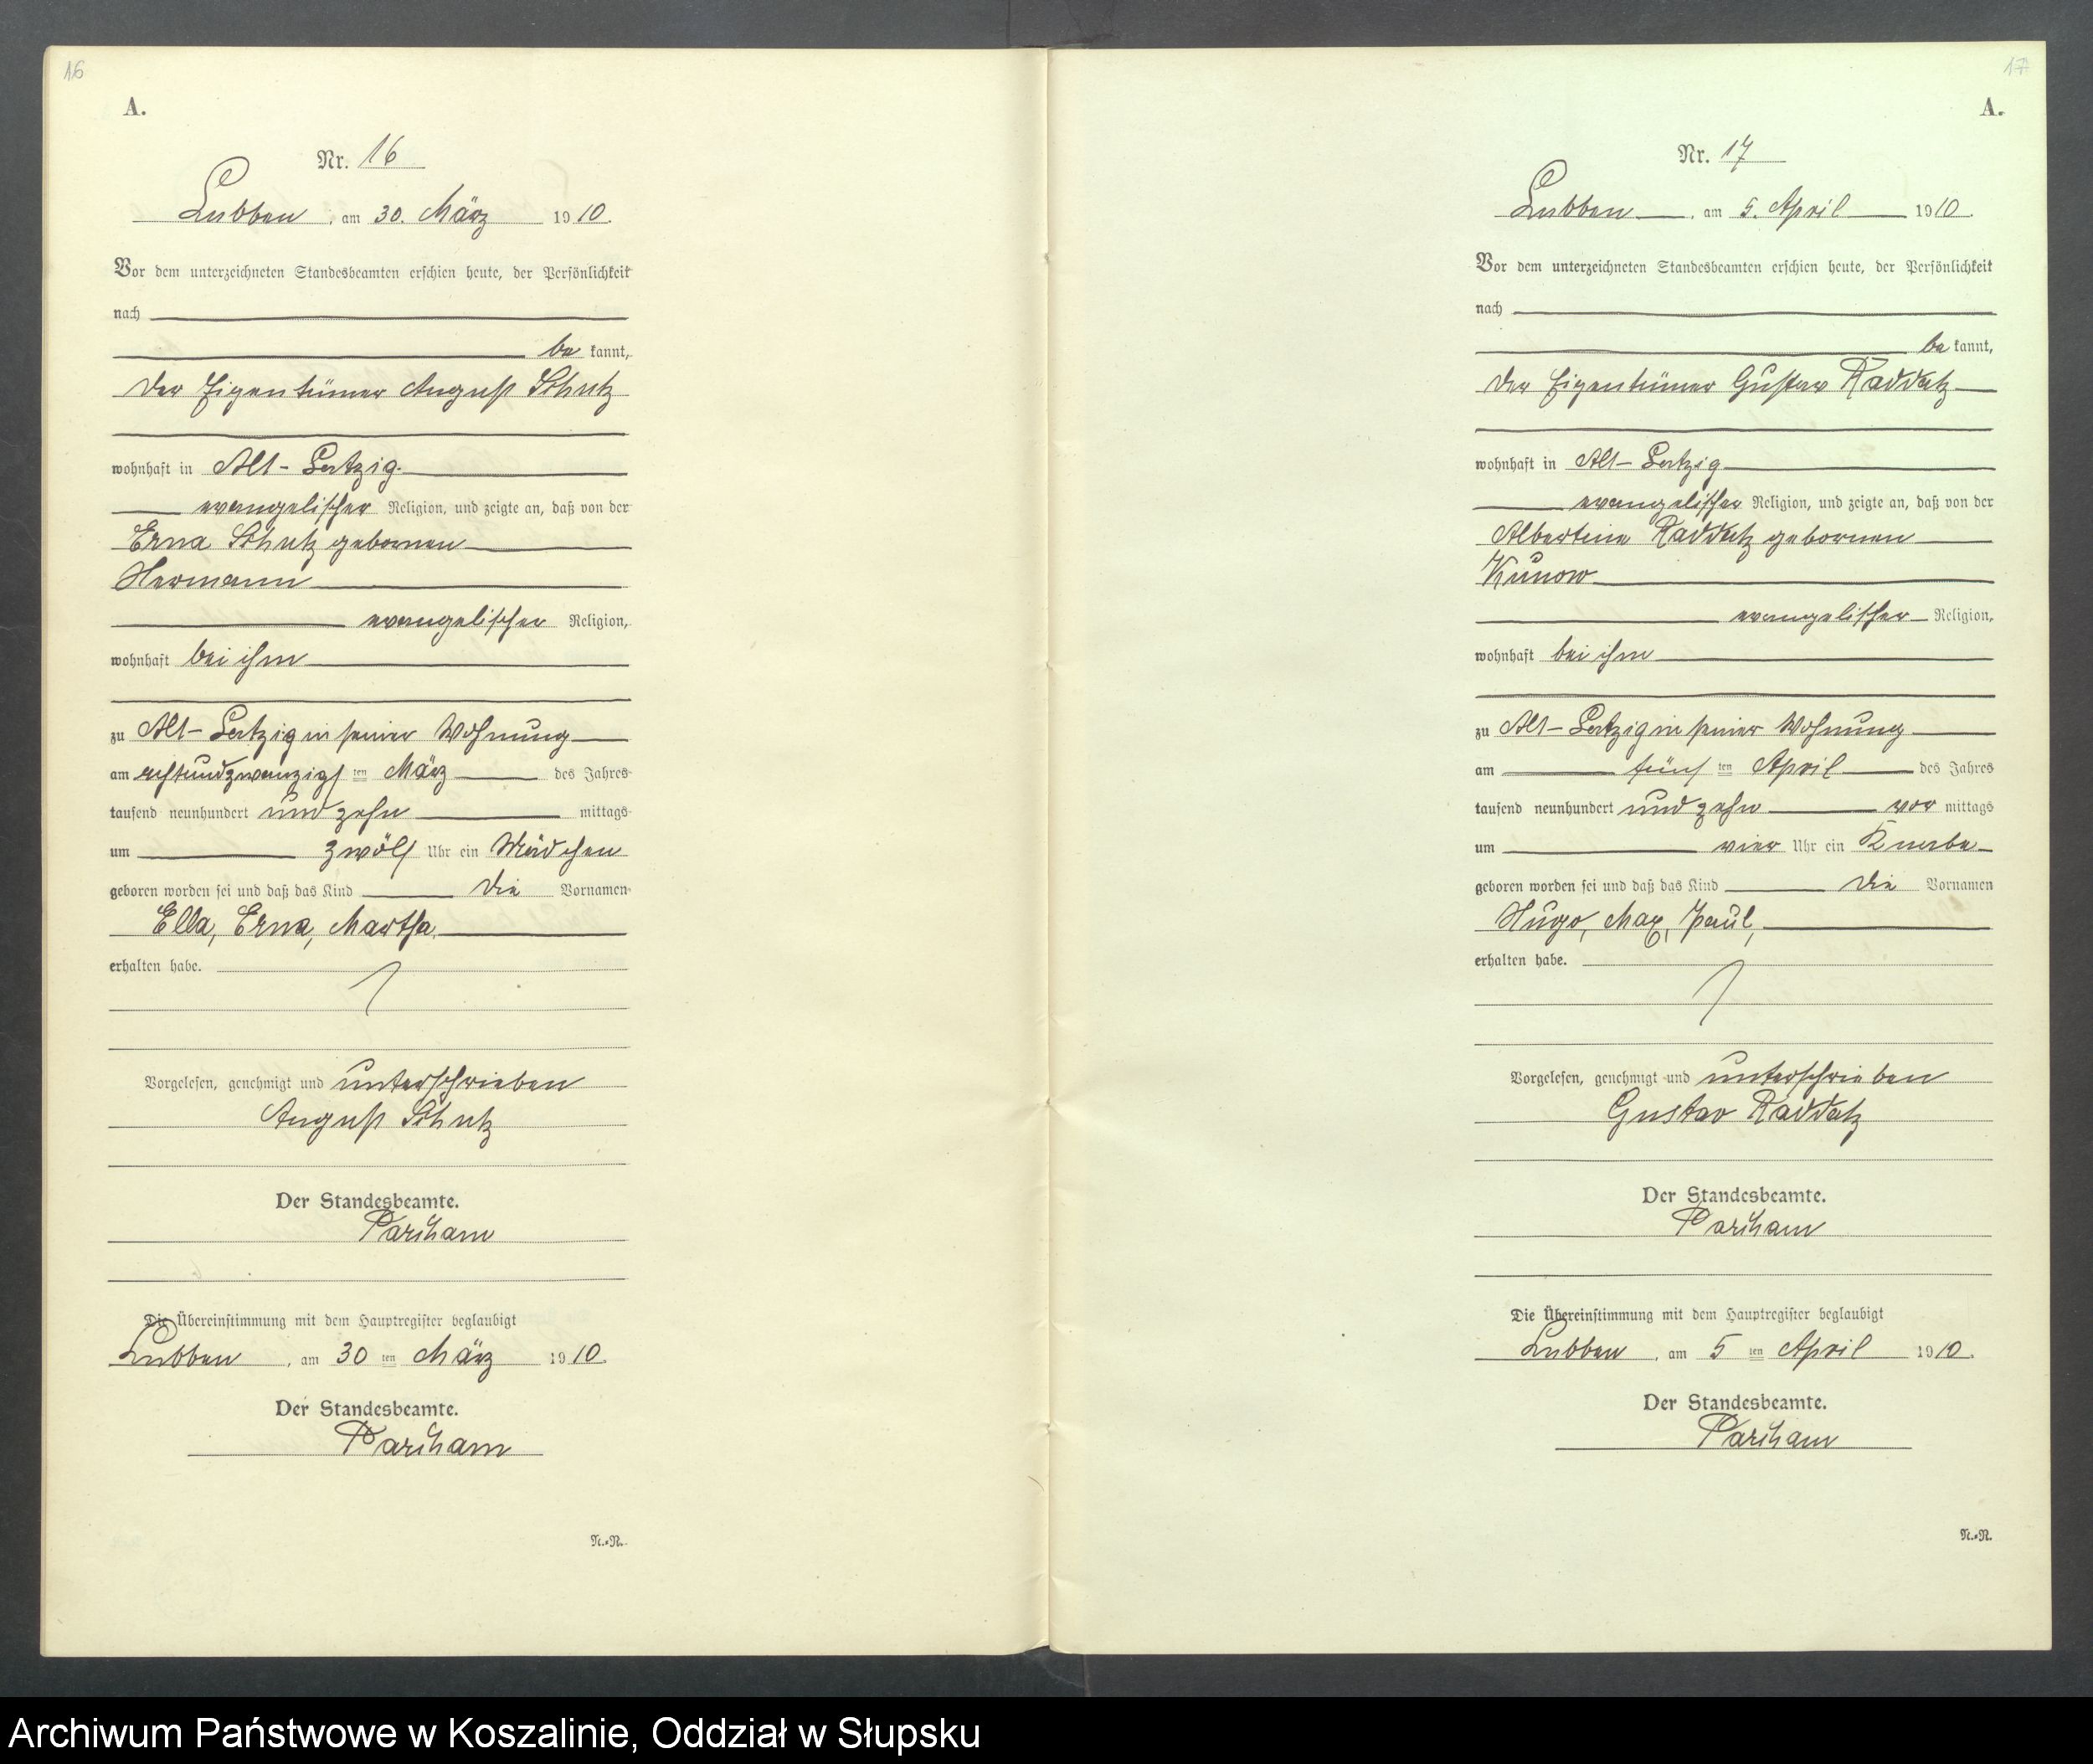 16
A.
Nr. 16
Lubben, am 30. März 1910.
Vor dem unterzeichneten Standesbeamten erschien heute, der Persönlichkeit
nach
be kannt,
der Eigentümer August Schutz
wohnhaft in Alt-
evangelischer Religion, und zeigte an, daß von der
Erna Schutz gebornen
Hermann
evangelischer Religion,
wohnhaft bei ihm
zu Alt- in seiner Wohnung
am achtundzwanzigsten März des Jahres
tausend neunhundert und zehn mittags
um zwölf Uhr ein Mädchen
geboren worden sei und daß das Kind die Vornamen
Ella, Erna, Martha
erhalten habe.
Vorgelesen, genehmigt und unterschrieben
August Schutz
Der Standesbeamte.
Die Übereinstimmung mit dem Hauptregister beglaubigt
Lubben, am 30 ten März 1910.
Der Standesbeamte.
N.-R.
17
A.
Nr. 17
Lubben, am 5. April 1910.
Vor dem unterzeichneten Standesbeamten erschien heute, der Persönlichkeit
nach
be kannt,
der Eigentümer Gustav Raddatz
wohnhaft in Alt-
evangelischer Religion, und zeigte an, daß von der
Albertine Raddatz gebornen
Kunow
evangelischer Religion,
wohnhaft bei ihm
zu Alt- in seiner Wohnung
am fünf ten April des Jahres
tausend neunhundert und zehn vor mittags
um vier Uhr ein Knabe
geboren worden sei und daß das Kind die Vornamen
Hugo, Max, Paul,
erhalten habe.
Vorgelesen, genehmigt und unterschrieben
Gustav Raddatz
Der Standesbeamte.
Die Übereinstimmung mit dem Hauptregister beglaubigt
Lubben, am 5 ten April 1910.
Der Standesbeamte.
N.-R.
Archiwum Państwowe w Koszalinie, Oddział w Słupsku